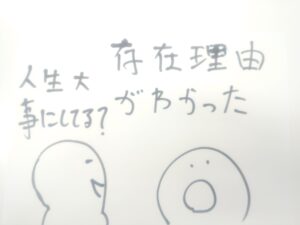 人生大
事にしてる?
存在理由
がわかった